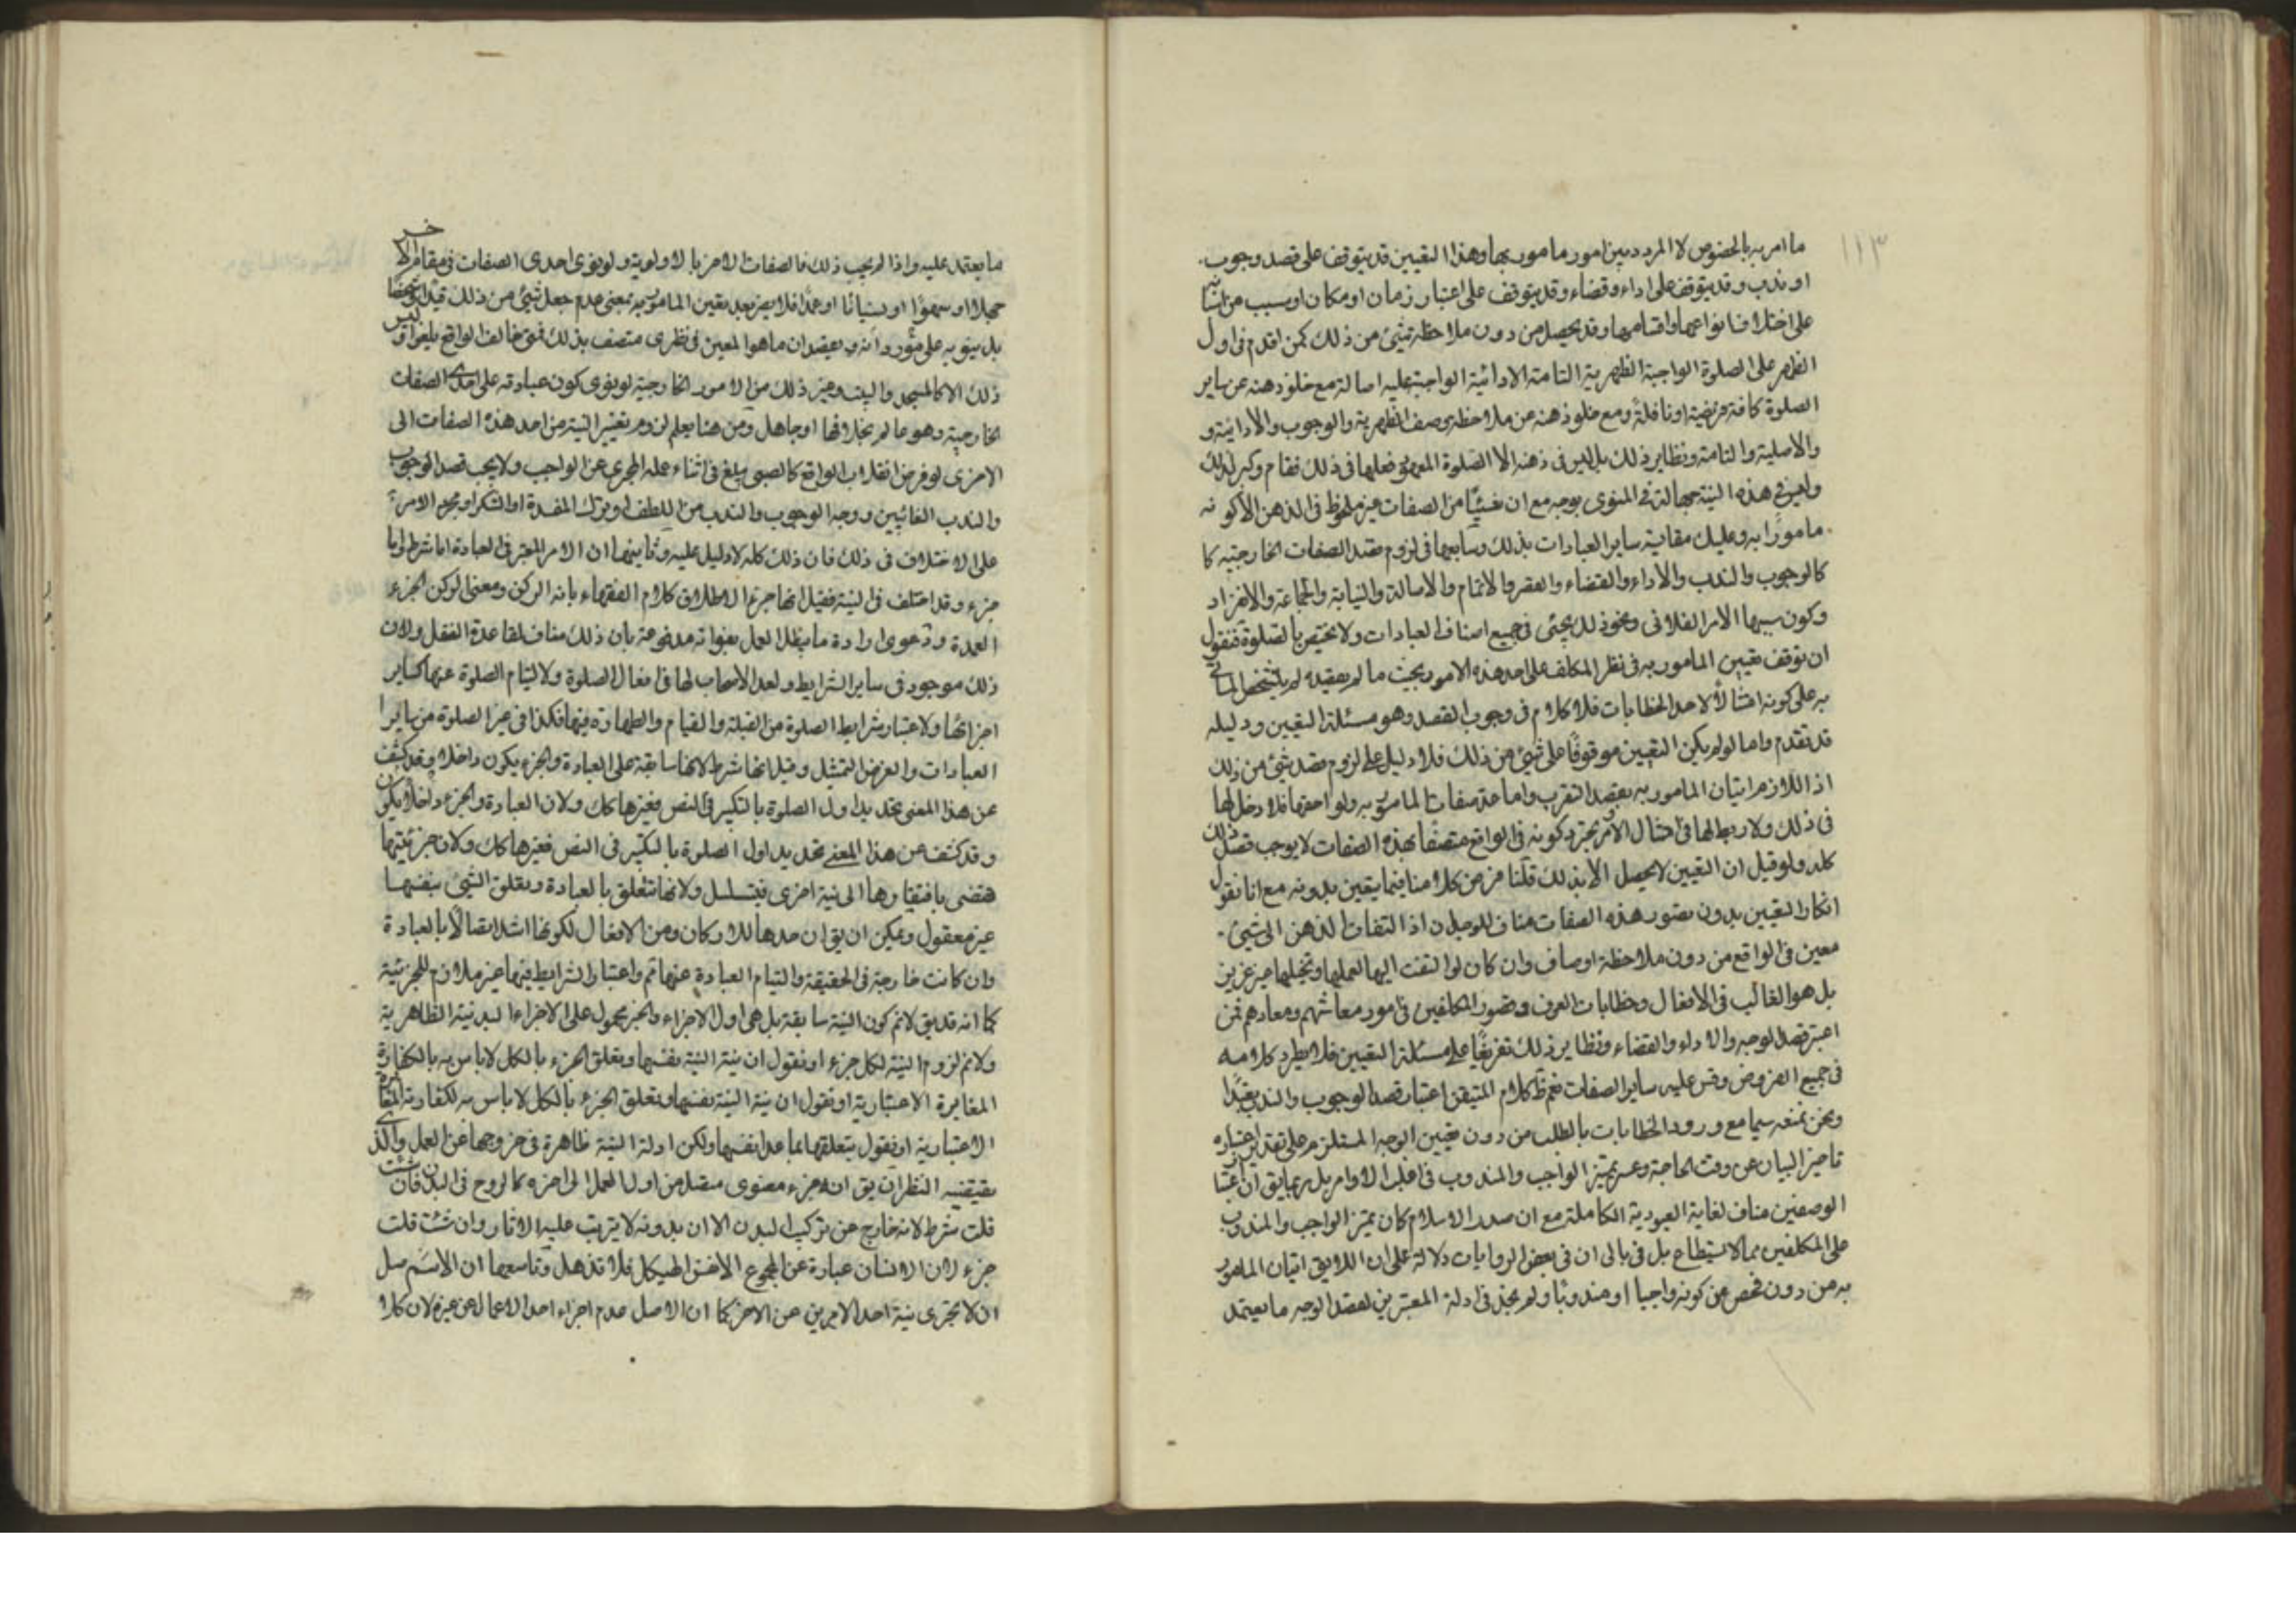 ١١٣
ما امر به بالخصوص لا المردد بين امور ما مور بها وهذا التعيين قد يتوقف على قصد وجوب
او ندب وقد يتوقف على اداء وقضاء وقد يتوقف على اعتبار زمان او مكان او سبب من
على اختلاف انواعها واقسامها وقد يحصل من دون ملاحظة شيئ من ذلك كمن اقدم في اول
الظهر على الصلوة الواجبة الظهرية التامة الادائية الواجبة عليه اصالة مع خلو ذهنه عن ساير
الصلوة كافة فريضة او نافلة ومع خلو ذهنه عن ملاحظة وصف الظهرية والوجوب والادائية و
والاصلية والتامة ونظاير ذلك بل ليس في ذهنه الا الصلوة المعهود فعلها في ذلك فقام وكبر لذلك
وليس في هذه النية جهالة في المنوى بوجه مع ان شيئًا من الصفات غير ملحوظ في الذهن الا كونه
مامورًا به وعليك مقايسة ساير العبادات بذلك وسابعها في لزوم قصد الصفات الخارجية كا
كالوجوب والندب والاداء والقضاء والقصر والاتمام والاصالة والنيابة والجماعة والانفراد
وكون سببها الامر الفلاني ونحو ذلك يجئى في جميع اصناف العبادات ولا يختص بالصلوة فنقول
ان توقف تعيين المامور به في نظر المكلف على احد هذه الامور بحيث ما لم يقيده لم يتشخص الماتى
به على كونه امتثالًا لاحد الخطابات فلا كلام في وجوب القصد وهو مسئلة التعيين ودليله
قد تقدم واما لو لم يكن التعيين موقوفًا على شيئ من ذلك فلا دليل على لزوم قصد شيئ من ذلك
اذ اللازم اتيان المامور به بقصد التقرب واما عد صفات المامور به ولواحقها فلا دخل لها
في ذلك ولا ربط لها في امتثال الامر ومجرد كونه في الواقع متصفًا بهذه الصفات لا يوجب قصد ذلك
كله ولو قيل ان التعيين لا يحصل الا بذلك قلنا فرض كلامنا فيما يتعين بدونه مع انا نقول
انكار التعيين بدون تصور هذه الصفات مناف للوجدان اذ التفات الذهن الى شيئ
معين في الواقع من دون ملاحظة اوصاف وان كان لو التفت اليها لعملها وتخيلها غير عزيز
بل هو الغالب في الافعال وخطابات العرف وقصود المكلفين في امور معاشهم ومعادهم فمن
اعتبر قصد الوجه والاداء والقضاء ونظاير ذلك تفريعًا على مسئلة التعيين فلا يطرد كلامه
في جميع الفروض وقس عليه ساير الصفات نعم ظ كلام اعتبار قصد الوجوب والندب تعبدًا
ونحن نمنعه سيما مع ورود الخطابات بالطلب من دون تعيين الوجه المستلزم على تقدير اعتباره
تاخير البيان عن وقت الحاجة وعسر تميز الواجب والمندوب في اغلب الاوامر بل ربما يق ان اعتبار
الوصفين مناف لغاية العبودية الكاملة مع ان صدر الاسلام كان تميز الواجب والمندوب
على المكلفين مما لا يستطاع بل في بالى ان في بعض الروايات دلالة على ان اللايق اتيان المامور
به من دون فحص عن كونه واجبا او مندوبًا ولم نجد في ادلة المعتبرين لقصد الوجه ما يعتمد
ما يعتمد عليه واذا لم يجب ذلك فالصفات الاخر بالاولوية ولو نوى احدى الصفات في مقام الاخر
جهلا او سهوًا او نسيانًا او عمدًا فلا يضر بعد تعين المامور به بمعنى عدم جعل شيئ من ذلك قيدًا
بل ينويه على ويعتقد ان ما هو المعين في نظرى متصف بذلك فمتى خالف الواقع يلغو اذ ليس
ذلك الا كالمسجد والبيت وغير ذلك من الامور الخارجية لو نوى كون عبادته على احدى الصفات
الخارجية وهو عالم بخلافها او جاهل ومن هنا يعلم لزوم تغيير النية من احد هذه الصفات الى
الاخرى لو فرض انقلاب الواقع كالصبى يبلغ في اثناء عمله المجرى عن الواجب ولا يجب قصد الوجوب
والندب الغائيين ووجه الوجوب والندب من اللطف او ترك المفسدة او الشكر او مجرد الامر
على الاختلاف في ذلك فان ذلك كله لا دليل عليه وثامنها ان الامر المعتبر في العبادة اما شرط واما
جزء وقد اختلف في النية فقيل انها جزء لاطلاق كلام الفقهاء بانه الركن ومعنى الركن الجزء
العمدة ودعوى ارادة ما يبطل العمل بفواته مدفوعة بان ذلك مناف لقاعدة النقل ولان
ذلك موجود في ساير الشرايط ولعد الاصحاب لها في افعال الصلوة ولالتيام الصلوة عنها كساير
اجزائها ولاعتبار شرايط الصلوة من القبلة والقيام والطهارة فيها فكذا في غير الصلوة من ساير
العبادات والغرض التمثيل وقيل انها شرط لانها سابقة على العبادة والجزء يكون داخلا وقد كشف
عن هذا المعنى تحديد اول الصلوة بالتكبير في النص فغيرها كك ولان العبادة والجزء داخلًا يكون
وقد كشف عن هذا المعنى تحديد اول الصلوة بالتكبير في النص فغيرها كك ولان جزئيتها
تقتضى بافتقارها الى نية اخرى فيتسلسل ولانها تتعلق بالعبادة وتعلق الشيئ بنفسها
غير معقول ويمكن ان يق ان عدها للاركان ومن الافعال لكونها اشد اتصالًا بالعبادة
وان كانت خارجة في الحقيقة والتيام العبادة عنها ثم واعتبار الشرايط فيها غير ملازم للجزئية
كما انه قد يق لانم كون النية سابقة بل هي اول الاجزاء والخبر محمول على الاجزاء البدنية الظاهرية
ولانم لزوم النية لكل جزء او نقول ان نية النية بنفسها وتعلق الجزء بالكل لا باس به بالكفاية
المغايرة الاعتبارية او نقول ان نية النية بنفسها وتعلق الجزء بالكل لا باس به لكفاية المغايرة
الاعتبارية او نقول بتعلقها بما عدا نفسها ولكن ادلة النية ظاهرة في خروجها عن العمل والذى
يقتضيه النظر ان يق انه جزء معنوى متصل من اول العمل الى اخره كالروح في البدن فان شئت
قلت شرط لانه خارج عن تركيب البدن الا ان بدونه لا يترتب عليه الاثار وان شئت قلت
جزء لان الانسان عبارة عن المجموع الا الهيكل فلا تذهل وتاسعها ان الاصل
ان لا تجزى نية احد الامرين عن الاخر كما ان الاصل عدم اجزاء احد الاعمال عن غيره لان كلا